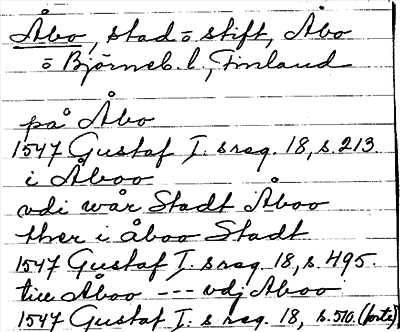 Åbo, stad o stift, Åbo
o Björneb. l., Finland
på Åbo
1547 Gustaf I. s reg. 18, s. 213.
i Åboo
vdi wår Stadt Åboo
ther i åboo Stadt
1547 Gustaf I. s reg. 18, s. 495.
tiil Åboo --- vdj Aboo
1547 Gustaf I: s reg. 18, s. 510. (forts)